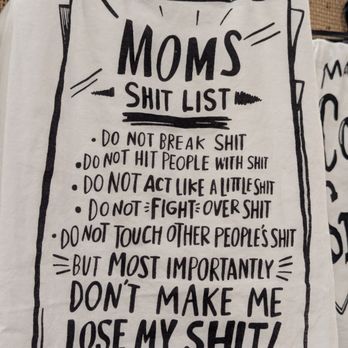 MOMS
SHIT LIST
• DO NOT BREAK SHIT
• DO NOT HIT PEOPLE WITH SHIT
• DO NOT ACT LIKE A LITTLE SHIT
• DO NOT FIGHT OVER SHIT
• DO NOT TOUCH OTHER PEOPLE'S SHIT
BUT MOST IMPORTANTLY
DON'T MAKE ME
LOSE MY SHIT!